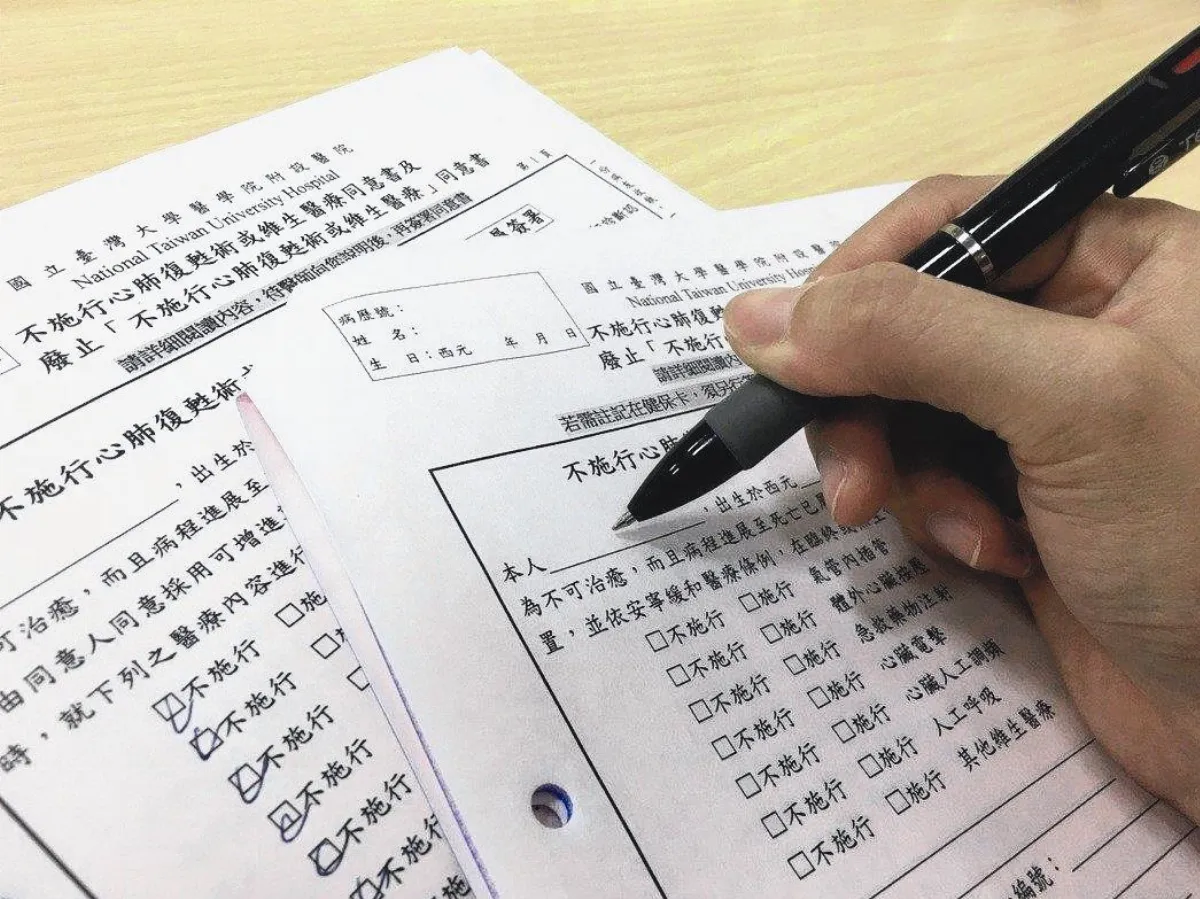 國立臺灣大學醫學院附設醫院
National Taiwan University Hospital
不施行心肺復甦術或維生醫療同意書及
廢止「不施行心肺復甦術或維生醫療」同意書
第1頁
請詳細閱讀內容,待醫師向您說明後,再簽署同意書
不施行心肺復甦術
,出生於
可治癒,而且病程進展至
由同意人同意採用可增進
時,就下列之醫療內容進行
不施行 □施
不施行
不施行
不施行
不施行
不施行
不施
國立臺灣大學醫學院附設醫院
National Taiwan University Hosp
不施行心肺復甦
廢止「不施行
請詳細閱讀內
若需註記在健保卡,須另行簽
病歷號:
姓名:
生日:西元 年 月 日
不施行心肺
本人 ,出生於西元
為不可治癒,而且病程進展至死亡已
置,並依安寧緩和醫療條例,在臨終或
□不施行 □施行 氣管內插管
□不施行 □施行 體外心臟按壓
□不施行 □施行 急救藥物注射
□不施行 □施行 心臟電擊
□不施行 □施行 心臟人工調頻
□不施行 □施行 人工呼吸
□不施行 □施行 其他維生醫療
編號: